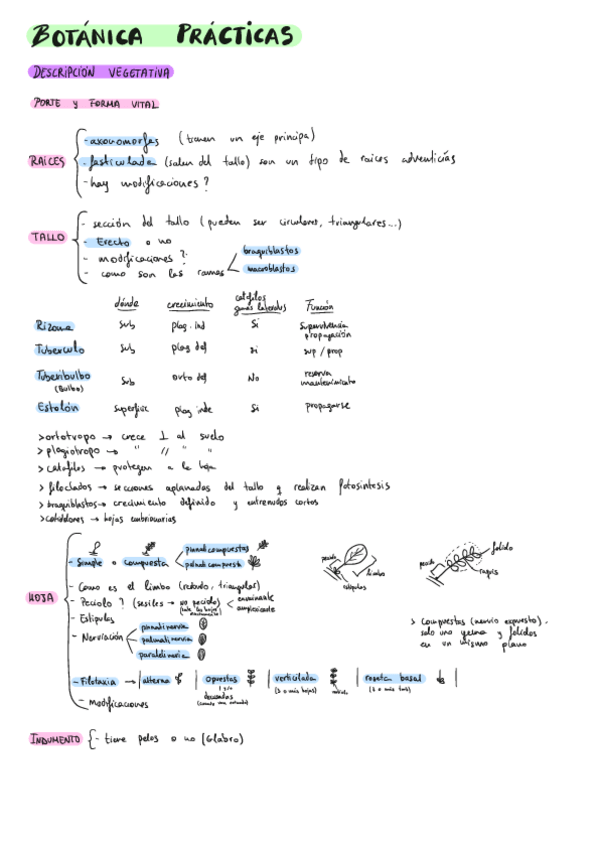 BOTÁNICA PRÁCTICAS
DESCRIPCIÓN VEGETATIVA
PORTE y FORMA VITAL
RAICES
- axonomorfas (tienen un eje principal)
- fasciculada (salen del tallo) son un tipo de raices adventicias
- hay modificaciones?
TALLO
- sección del tallo (pueden ser circulares, triangulares...)
- Erecto o no
- modificaciones?
- como son las ramas
braquiblastos
macroblastos
dónde crecimiento catafilos Función
Rizoma sub plag. ind Si supervivencia propagación
Tuberculo sub plag def si sup / prop
Tuberibulbo (Bulbo) sub orto def No reserva mantenimiento
Estolón superficie plag inde Si propagarse
> ortotropo → crece ⊥ al suelo
> plagiotropo → " // " "
> catafilos → protegen a la
> filoclados → secciones aplanadas del tallo y realizan fotosintesis
> braquiblastos → crecimiento definido y entrenudos cortos
> cotiledones → hojas embrionarias
HOJA
- Simple o compuesta
pinnaticompuestas
palmaticompuesta
- Como es el limbo (redondo, triangular)
- Peciolo? (sesiles → no peciolo)
- Estipulas
- Nerviación
pinnatinervia
palmatinervia
paralelinervia
- Filotaxia → | alterna | opuestas | verticilada | roseta basal |
decusadas
(3 o más hojas)
- modificaciones
peciolo
limbo
estipulas
peciolo
foliolo
raquis
> compuestas (nervio expuesto).
solo una yema y foliolos
en un mismo plano
INDUMENTO { - tiene pelos o no (Glabro)